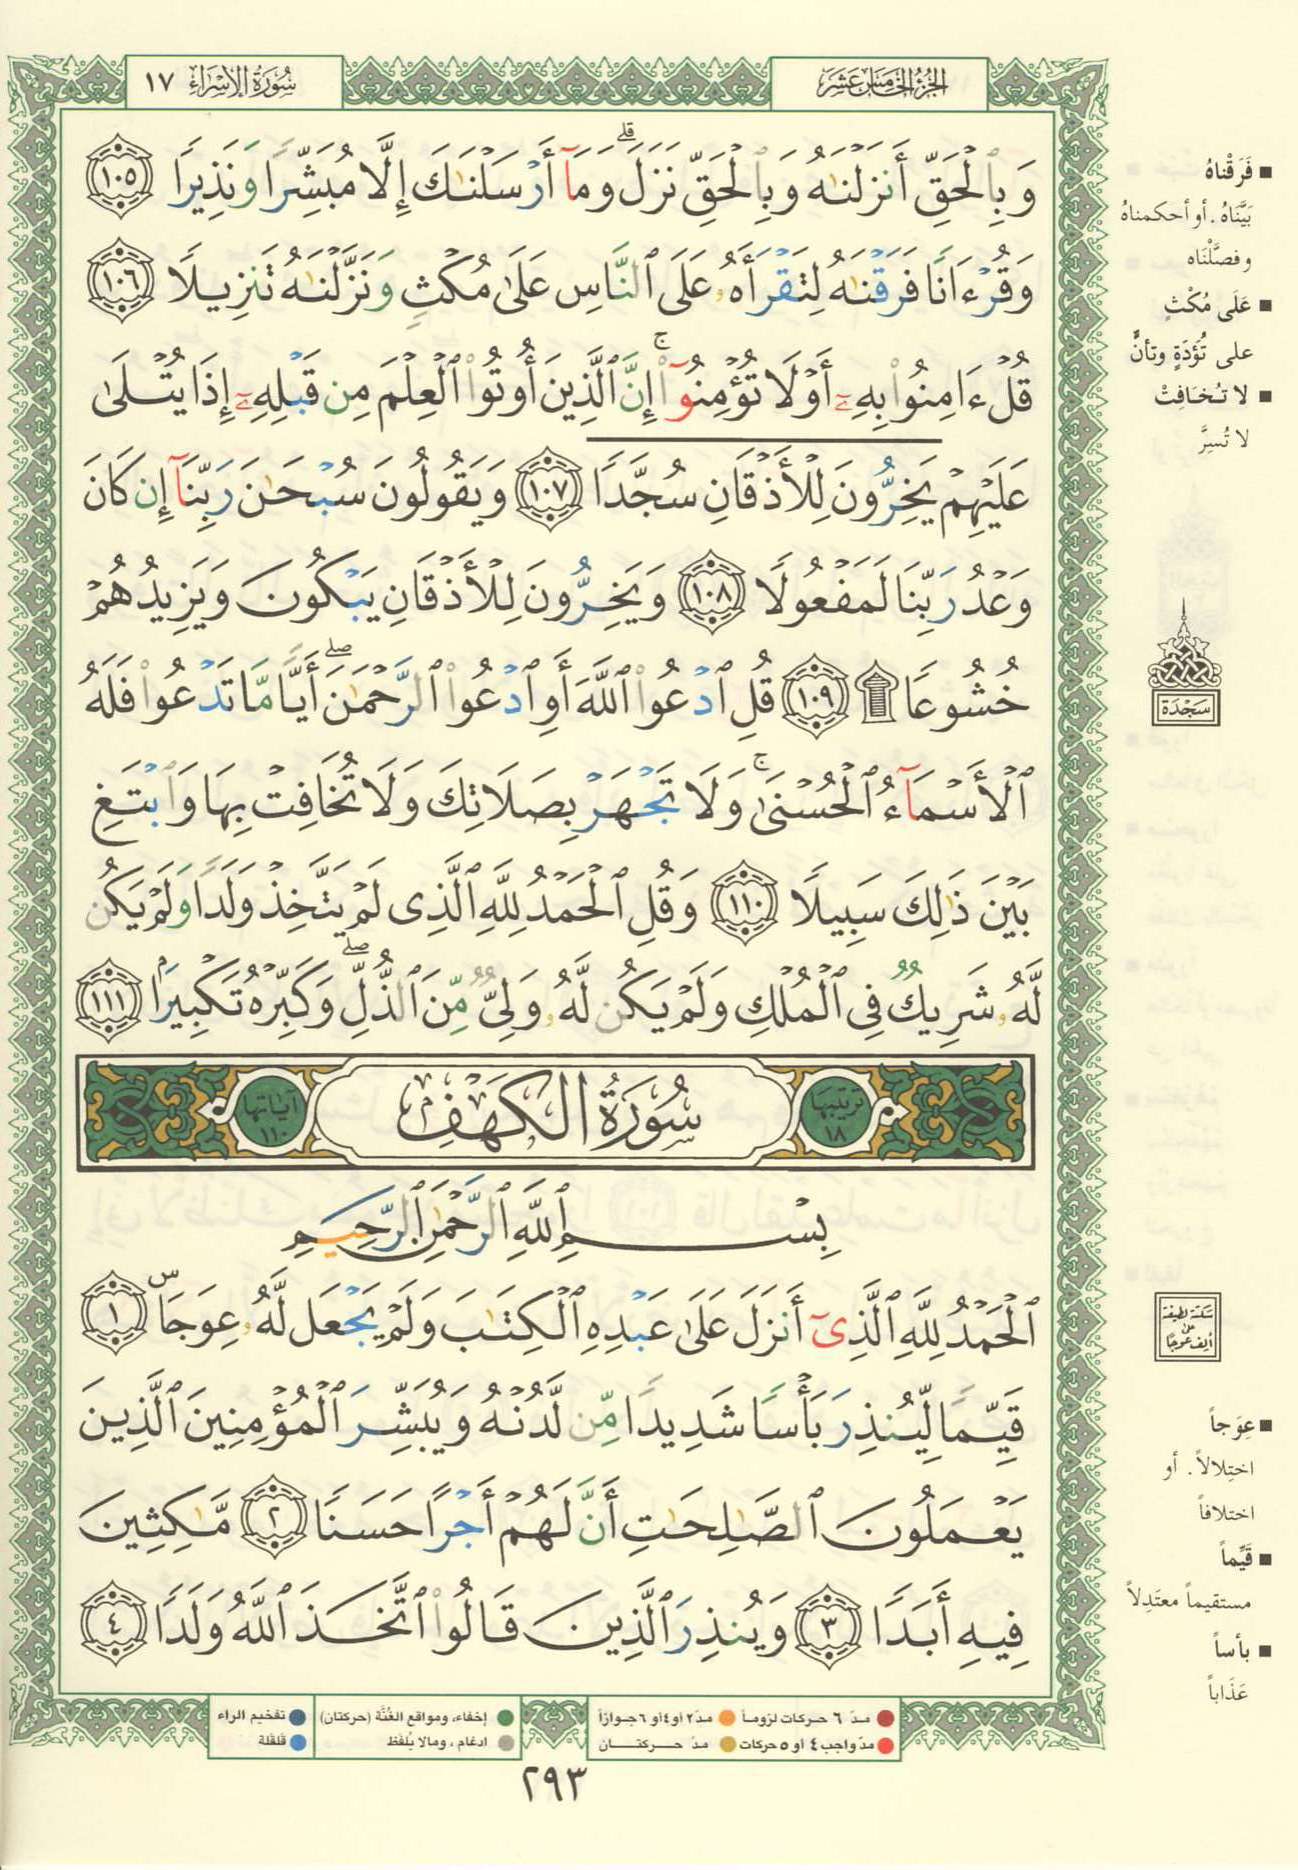 سُورَةُ الإِسْرَاءِ ١٧
الجُزْءُ الخَامِسَ عَشَرَ
وَبِٱلْحَقِّ أَنزَلْنَٰهُ وَبِٱلْحَقِّ نَزَلَ ۗ وَمَآ أَرْسَلْنَٰكَ إِلَّا مُبَشِّرًا وَنَذِيرًا ١٠٥
وَقُرْءَانًا فَرَقْنَٰهُ لِتَقْرَأَهُۥ عَلَى ٱلنَّاسِ عَلَىٰ مُكْثٍ وَنَزَّلْنَٰهُ تَنزِيلًا ١٠٦
قُلْ ءَامِنُوا۟ بِهِۦٓ أَوْ لَا تُؤْمِنُوٓا۟ ۚ إِنَّ ٱلَّذِينَ أُوتُوا۟ ٱلْعِلْمَ مِن قَبْلِهِۦٓ إِذَا يُتْلَىٰ
عَلَيْهِمْ يَخِرُّونَ لِلْأَذْقَانِ سُجَّدًا ١٠٧ وَيَقُولُونَ سُبْحَٰنَ رَبِّنَآ إِن كَانَ
وَعْدُ رَبِّنَا لَمَفْعُولًا ١٠٨ وَيَخِرُّونَ لِلْأَذْقَانِ يَبْكُونَ وَيَزِيدُهُمْ
خُشُوعًا ۩ ١٠٩ قُلِ ٱدْعُوا۟ ٱللَّهَ أَوِ ٱدْعُوا۟ ٱلرَّحْمَٰنَ ۖ أَيًّا مَّا تَدْعُوا۟ فَلَهُ
ٱلْأَسْمَآءُ ٱلْحُسْنَىٰ ۚ وَلَا تَجْهَرْ بِصَلَاتِكَ وَلَا تُخَافِتْ بِهَا وَٱبْتَغِ
بَيْنَ ذَٰلِكَ سَبِيلًا ١١٠ وَقُلِ ٱلْحَمْدُ لِلَّهِ ٱلَّذِى لَمْ يَتَّخِذْ وَلَدًا وَلَمْ يَكُن
لَّهُۥ شَرِيكٌ فِى ٱلْمُلْكِ وَلَمْ يَكُن لَّهُۥ وَلِىٌّ مِّنَ ٱلذُّلِّ ۖ وَكَبِّرْهُ تَكْبِيرًۢا ١١١
ترتيبها ١٨
سُورَةُ الكَهْفِ
آياتها ١١٠
بِسْمِ ٱللَّهِ ٱلرَّحْمَٰنِ ٱلرَّحِيمِ
ٱلْحَمْدُ لِلَّهِ ٱلَّذِىٓ أَنزَلَ عَلَىٰ عَبْدِهِ ٱلْكِتَٰبَ وَلَمْ يَجْعَل لَّهُۥ عِوَجَاۜ ١
قَيِّمًا لِّيُنذِرَ بَأْسًا شَدِيدًا مِّن لَّدُنْهُ وَيُبَشِّرَ ٱلْمُؤْمِنِينَ ٱلَّذِينَ
يَعْمَلُونَ ٱلصَّٰلِحَٰتِ أَنَّ لَهُمْ أَجْرًا حَسَنًا ٢ مَّٰكِثِينَ
فِيهِ أَبَدًا ٣ وَيُنذِرَ ٱلَّذِينَ قَالُوا۟ ٱتَّخَذَ ٱللَّهُ وَلَدًا ٤
■ فَرَقْناهُ
بَيَّنَاهُ. أو أحكمناهُ
وفصَّلْنَاه
■ عَلَى مُكْثٍ
على تُؤَدَةٍ وتأنٍّ
■ لا تُخَافِتْ
لا تُسِرَّ
سَجْدَة
سكتة لطيفة
على
ألِف عوجا
■ عِوَجاً
اختِلالاً. أو
اختلافاً
■ قَيِّماً
مستقيماً معتَدِلاً
■ بأساً
عَذَاباً
مدّ ٦ حركات لزوماً
مدّ ٢ أو ٤ أو ٦ جوازاً
مدّ واجب ٤ أو ٥ حركات
مدّ حركتان
إخفاء، ومواقع الغُنَّة (حركتان)
ادغام، ومالا يُلفَظ
تفخيم الراء
قلقلة
٢٩٣